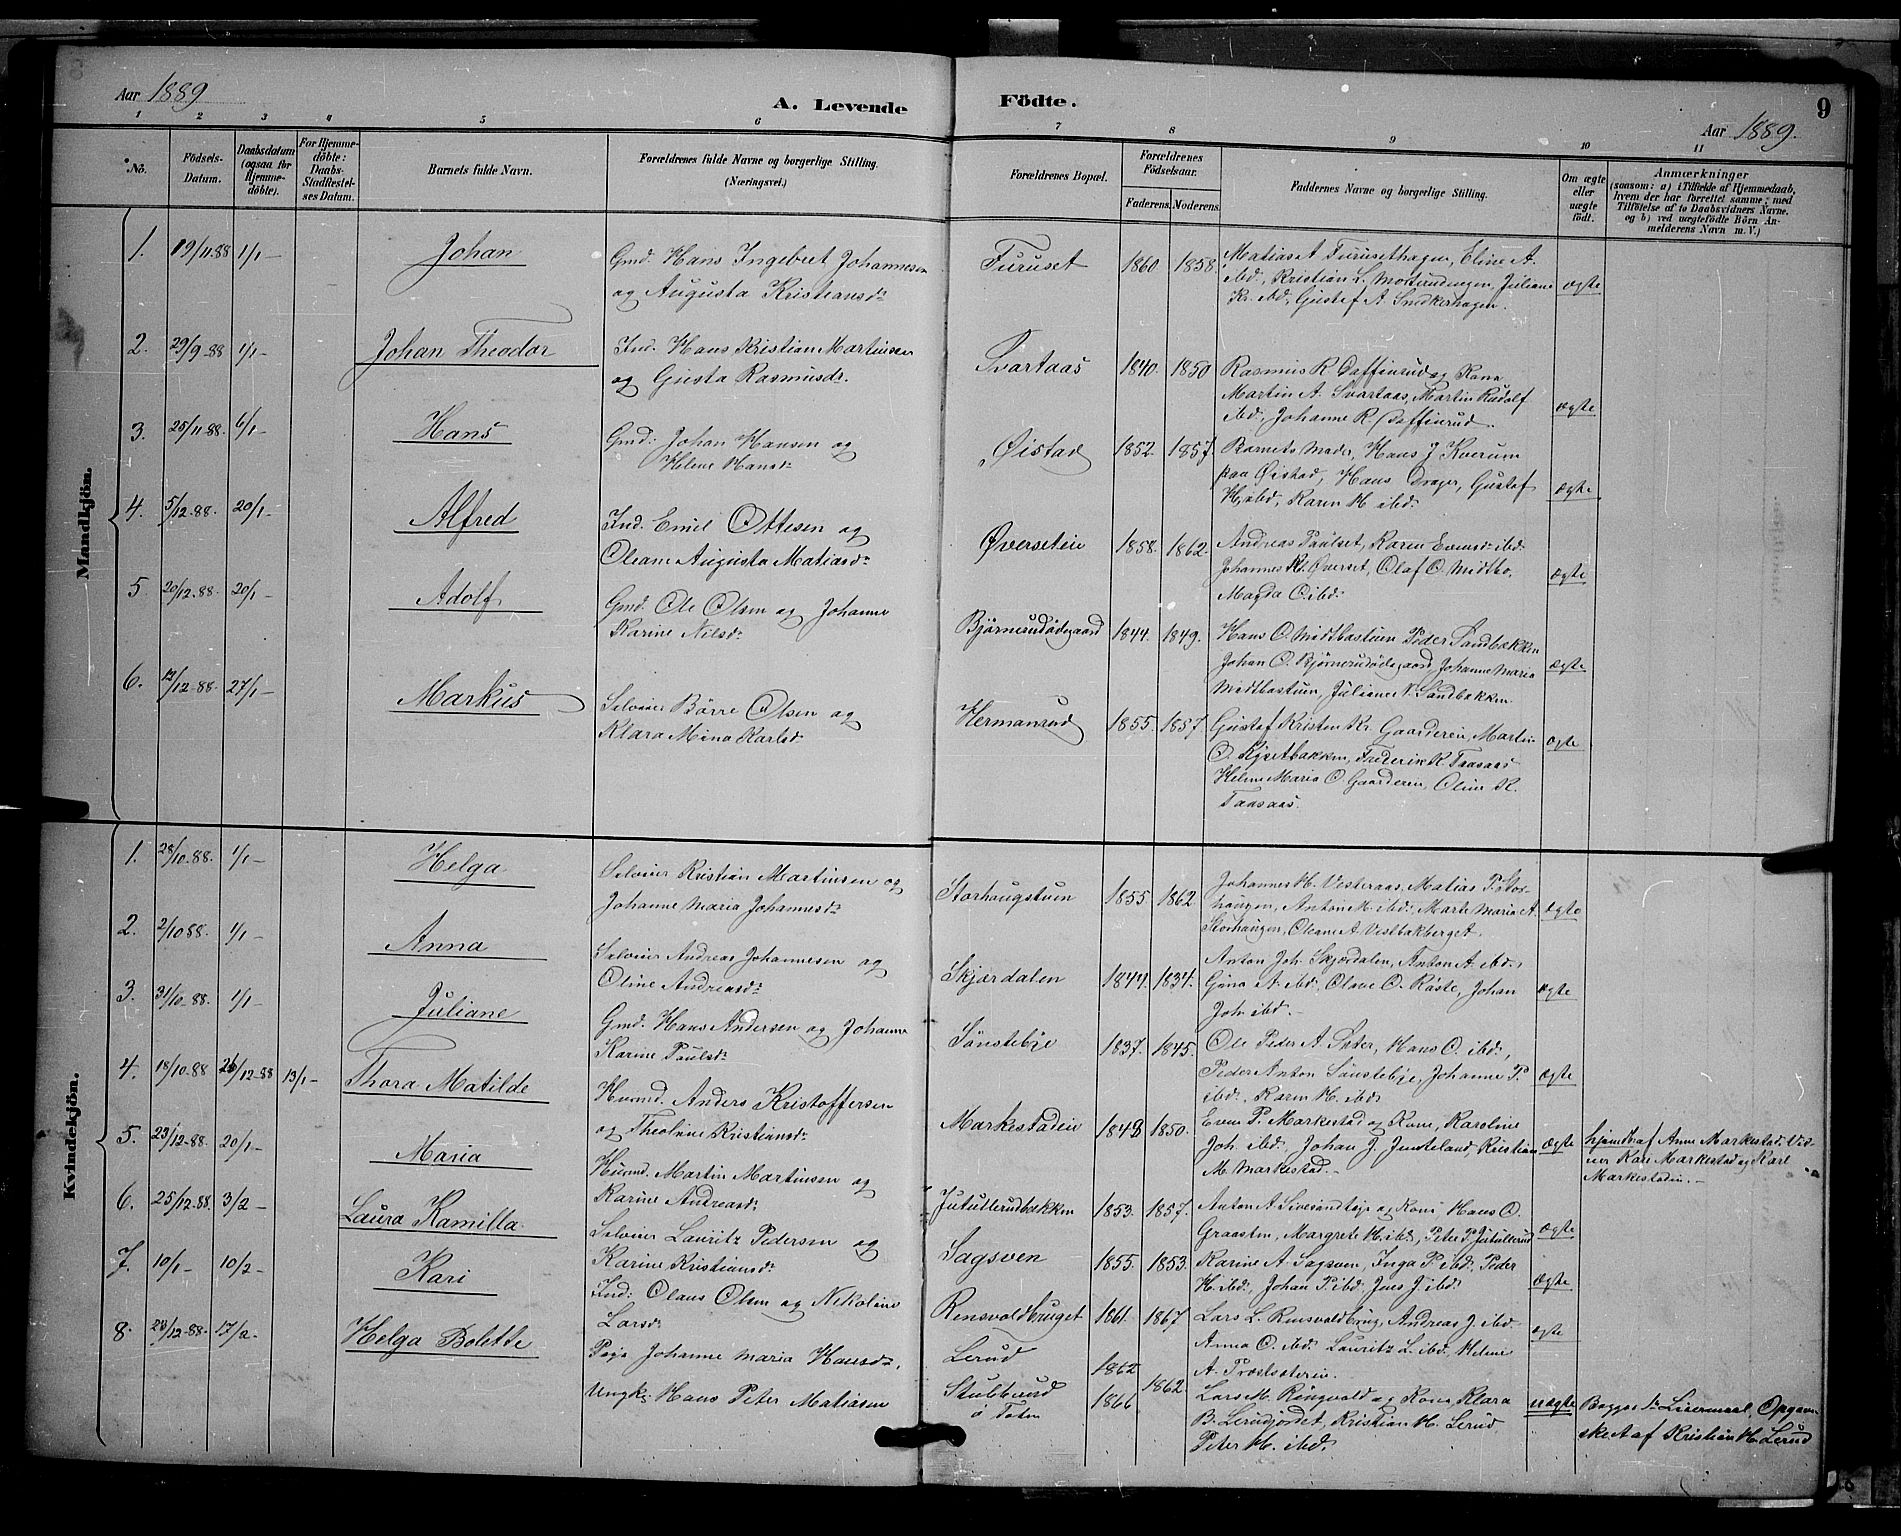 Aar 1889
A. Levende
Födte.
9
Aar 1889.
1 2 3 4 5 6 7 8 9 10 11
No.
Födsels-
Datum.
Daabsdatum
(ogsaa for
Hjemme-
döbte).
For Hjemme-
döbte:
Daabs-
Stadfæstel-
ses Datum.
Barnets fulde Navn.
Forældrenes fulde Navne og borgerlige Stilling.
(Næringsvei.)
Forældrenes Bopæl.
Forældrenes
Födselsaar.
Faderens. Moderens.
Faddernes Navne og borgerlige Stilling.
Om ægte
eller
uægte
födt.
Anmærkninger
(saasom: a) i Tilfælde af Hjemmedaab,
hvem der har forrettet samme; med
Tilföielse af to Daabsvidners Navne.
og b) ved uægtefödte Börn An-
melderens Navn m. V.)
Mandkjön.
1. 19/11.88 1/1- Johan
Gmd. Hans Ingebret Johannesen
og Augusta Kristiansdr
Furuset 1860. 1858.
Matias A Furusethagen, Eline A.
ibd., Kristian L. Morterudengen, Juliane
Kr. ibd, Gustef A. Snekerhagen.
ægte
2. 29/9-88 1/1- Johan Theodor
Ind. Hans Kristian Martinsen
og Gusta Rasmusdr.
Svartaas 1840. 1850
Rasmus R Daffinrud og Kona
Martin A. Svartaas, Martin Rudolf
ibd., Johanne R. Daffinrud.
ægte
3. 25/11-88. 6/1- Hans
Gmd: Johan Hansen og
Helene Hansdr
Øistad 1852. 1857.
Barnets Moder, Hans J. Kverum
paa Øistad, Hans Drager, Gustaf
H. ibd, Karen H ibd.
ægte
4. 5/12-88. 20/1- Alfred
Ind. Emil Ottesen og
Oleane Augusta Matiasdr
Øverseteie 1858. 1862.
Andreas Paulset, Karen Evensdr ibd.
Johannes Kr. Øverset, Olaf O. Midtbo,
Magda O. ibd.
ægte
5 20/12-88. 20/1- Adolf
Gmd. Ole Olsen og Johanne
Karine Nilsdr
Bjørnerudødegaard 1844. 1849.
Hans O. Midtbøstuen Peder Sandbækken
Johan O. Bjørnerudødegaard, Johanne Maria
Midtbøstuen, Juliane N. Sandbækken.
ægte
6. 12/12-88 27/1- Markus
Selveier Børre Olsen og
Klara Mina Karlsdr
Hermanrud 1855. 1857.
Gustaf Kristen Kr. Gaarderen, Martin
O. Kjøsetbakken, Frederik K. Taasaas
Helene Maria O Gaarderen, Oline K.
Taasaas.
ægte
Kvindekjön.
1. 28/10-88. 1/1- Helga
Selveier Kristian Martinsen og
Johanne Maria Johannesdr
Storhaugstuen 1855 1862
Johannes H. Vesteraas, Matias P. Stor-
haugen, Anton M. ibd., Marte Maria A.
Storhaugen, Oleane A Veslbakberget.
ægte
2. 2/10 88. 1/1- Anna
Selveier Andreas Johannesen og
Oline Andreasdr
Skjærdalen 1844. 1834.
Anton Joh. Skjærdalen, Anton A. ibd.,
Gina A. ibd, Olave O. Røste, Johan
Joh. ibd.-
ægte
3. 31/10-88. 1/1- Juliane
Gmd. Hans Andersen og Johanne
Karine Paulsdr
Sønstebye 1837. 1845.
Ole Peder A. Sater, Hans O. ibd.,
Peder Anton Sønstebye, Johanne P.
ibd., Karen H. ibd.
ægte
4. 18/10-88 26/12-88 13/1- Thora Matilde
Husmd. Anders Kristoffersen
og Theoline Kristiansdr
Markestadeie 1849 1850.
Even P. Markestad og Kone, Karoline
Joh. ibd., Johan J. Jemteland, Kristian
M. Markestad.-
ægte
hjemdb. af Anne Markestad. Vid-
ner Kari Markestad og Karl
Markestadeie.-
5. 23/12-88. 20/1- Maria
Husmd. Martin Martinsen og
Karine Andreasdr
Jutullrudbækken 1853. 1857.
Anton A Livesandløge og Kone Hans O.
Graasten, Margrete H. ibd, Peter P. Jutullrud
ægte
6. 25/12-88. 3/2- Laura Kamilla
Selveier Lauritz Pedersen og
Karine Kristiansdr
Sagsven 1855. 1853.
Karine A. Sagsven, Inga P. ibd. Peder
H. ibd, Johan P. ibd. Jens J. ibd.
ægte
7. 10/1- 10/2- Kari
Ind: Olaus Olsen og Nikoline
Larsdr
Rensvoldbruget 1861. 1867
Lars L. Rensvoldbrug, Andreas J. ibd.
Anna O. ibd. Lauritz L. ibd, Helene
A. Præstsæterie.
ægte
8. 23/12-88. 17/2- Helga Bolette
Pige Johanne Maria Hansdr,
Ungk: Hans Peter Matiasen
Lerud
Stubberud
ø Toten
1862
1866 1862.
Lars M. Ringvold og Kone, Klara
B. Lerudjordet, Kristian H. Lerud
Peter H. ibd.
uægte
Begges 1ste Leiermaal, Opgave
ske A af Kristian H. Lerud